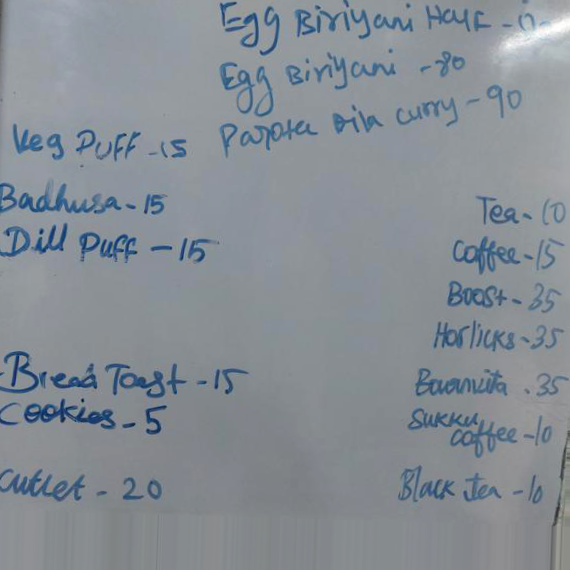 Egg Biriyani Half -
Egg Biriyani - 80
Parota with curry - 90
Veg Puff - 15
Badhusa - 15
Dill Puff - 15
Bread Toast - 15
Cookies - 5
Cutlet - 20
Tea - 10
Coffee - 15
Boost - 35
Horlicks - 35
Bournvita . 35
Sukku
coffee - 10
Black Tea - 10